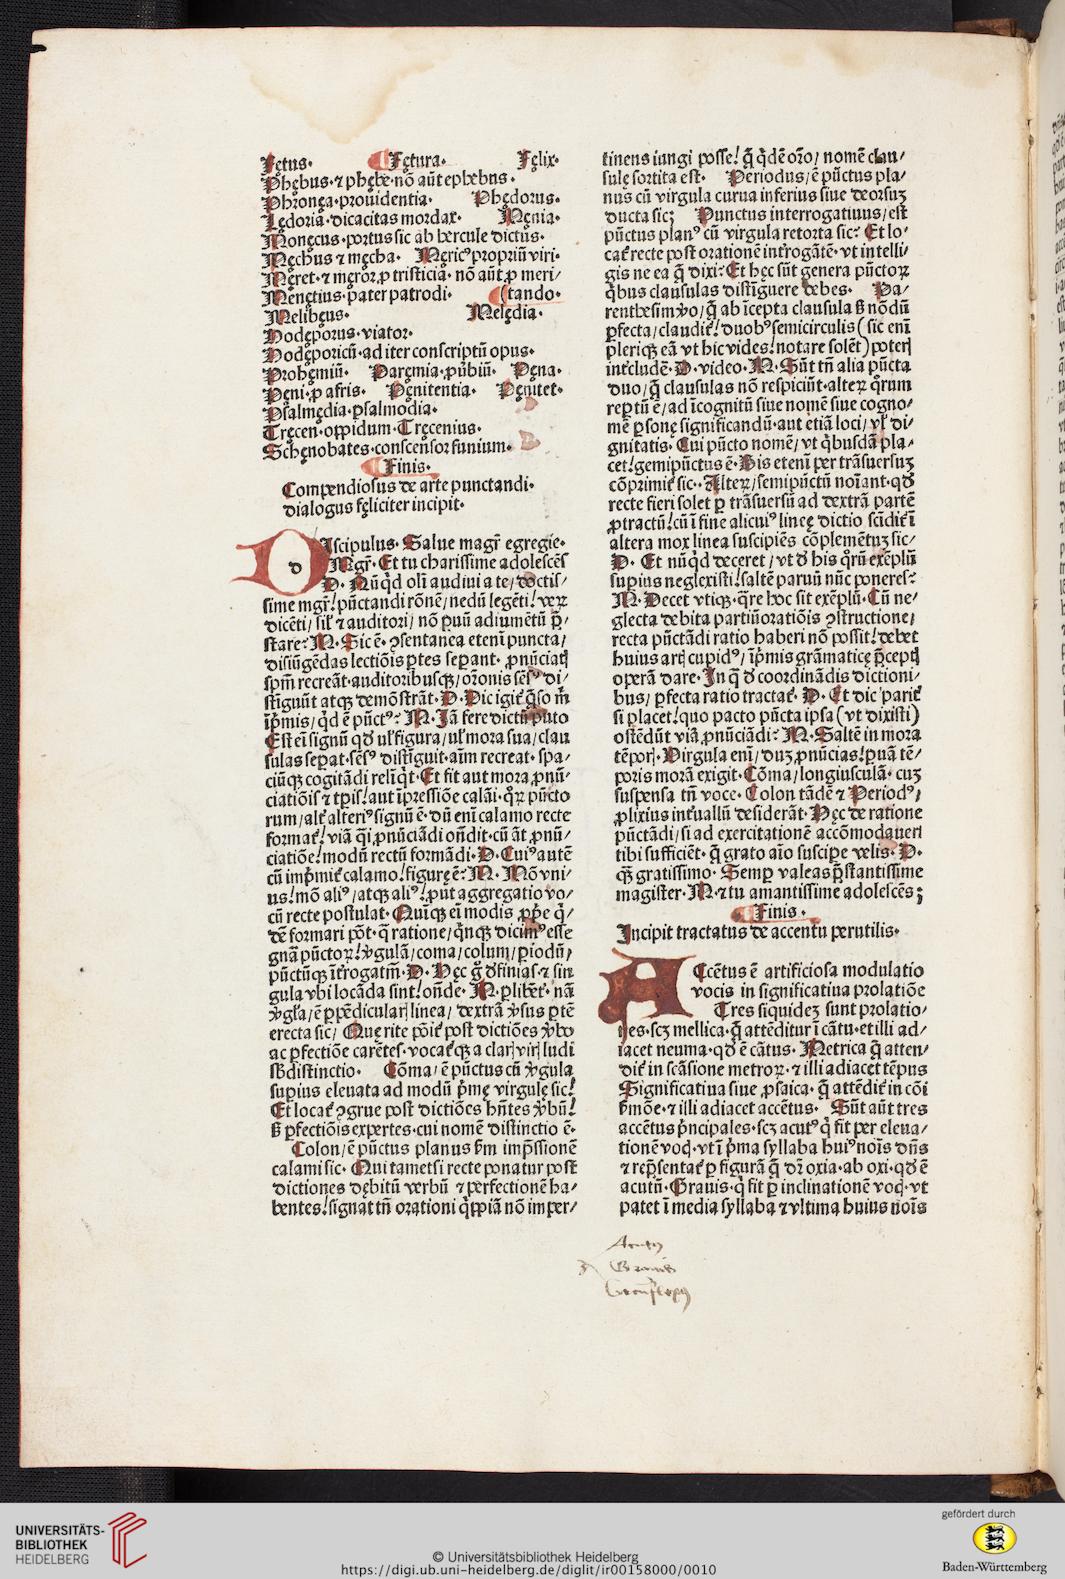 Fętus. Fętura. Fęlix.
Phębus. ⁊ phębe. nō aūt ephebus.
Phronęa. prouidentia. Phędorus.
Lędoria. dicacitas mordax. Nęnia.
Monęcus. portus sic ab hercule dictūs.
Męchus ⁊ męcha. Męricꝰ propriū viri.
Męret. ⁊ męror. ꝓ tristicia. nō aūt ꝓ meri/
Menętius. pater patrodi. tando.
Melibęus. Melędia.
Hodęporus. viator.
Hodęporicū. ad iter conscriptū opus.
Prohęmiū. Paręmia. ꝓūbiū. Pęna.
Pęni. ꝓ afris. Pęnitentia. Pęnitet.
Psalmędia. psalmodia.
Tręcen. oppidum. Tręcenius.
Schęnobates. conscensor funium.
Finis.
Compendiosus de arte punctandi.
dialogus fęliciter incipit.
DIscipulus. Salue magr̄ egregie.
Mgr̄. Et tu charissime adolescēs
D. Nūq̇d oli audiui a te/ doctis/
sime mgr̄! pūctandi rōnē/ nedū legēti! veꝝ
dicēti/ silꝰ ⁊ auditori/ nō ꝑuū adiumētū p̄/
stare? M. Sic ē. ꝯsentanea etenī puncta/
disiūgēdas lectiōis ꝑtes seꝑant. ꝓnūciātꝭ
spm̄ recreāt. auditoribusqꝫ/ orōnis sēsꝰ di/
stīguūt atqꝫ demōstrāt. D. Dic igiť q̄so m̄
īp̄mis/ q̇d ē pūctꝰ? M. Iā fere dictū puto
Est ei signū qd̄ uꝉ figura/ uꝉ mora sua/ clau
sulas seꝑat. sēsꝰ distīguit. aīm recreat. spa/
ciūqꝫ cogitādi reliq̇t. Et fit aut mora ꝓnū/
ciatiōis ⁊ tꝑis! aut īpressiōe calāi. q̇ꝝ pūcto
rum/ alť alteriꝰ signū ē. dū enī calamo recte
formať! viā q̇i ꝓnūciādi oñdit. cū āt ꝓnū/
ciatiōe! modū rectū formādi. D. Cuiꝰ autē
cū imp̄miť calamo! figurę ē? M. Nō vni/
us! nō aliꝰ/ atqꝫ aliꝰ! ꝓut aggregatio vo/
cū recte postulat. Quīqꝫ ei modis ꝓpe q̇/
dē formari pōt. q̄ ratione/ q̇nqꝫ dicimꝰ esse
gn̄a pūctoꝝ! v̄gulā/ coma/ colum/ ꝑiodū/
pūctūqꝫ īťrogatm̄. D. Hęc g̊ d̄finias. ⁊ sin
gula vbi locāda sint! oñde. M. plibēt. nā
v̄gla/ ē ꝑpēdicularꝭ linea/ dextrā v̄sus ꝑtē
erecta sic/ Quę rite pōiť post dictiōes v̄bo
ac ꝑfectiōe carētes. vocať qꝫ a clarꝭ virꝭ ludi
sb̄distinctio. Cōma/ ē pūctus cū v̄gula
supius eleuata ad modū p̄mę virgulę sic!
Et locať ꝯgrue post dictiōes hn̄tes v̄bū!
sꝫ ꝑfectiōis expertes. cui nomē distinctio ē.
Colon/ ē pūctus planus fm̄ imp̄ssionē
calami sic. Qui tametsi recte ponatur post
dictiones dębitū verbū ⁊ perfectionē ha/
bentes! signat tn̄ orationi q̇ppiā nō imper/
tinens iungi posse! q̄ q̇dē oro/ nomē clau/
sulę sortita est. Periodus/ ē pūctus pla/
nus cū virgula curua inferius siue deorsuꝫ
ducta sic; Punctus interrogatiuus/ est
pūctus planꝰ cū virgula retorta sic? Et lo/
cať recte post orationē introgātē. vt intelli/
gis ne ea q̄ dixi? Et hęc sūt genera pūctoꝝ
q̇bus clausulas distīguere debes. Pa/
renthesim v̊o/ q̄ ab īcepta clausula sꝫ nōdū
ꝑfecta/ claudiť! duobꝰ semicirculis (sic enī
pleriqꝫ eā vt hic vides! notare solēt) poterꝭ
intcludē. D. video. M. Sūt tn̄ alia pūcta
duo/ q̄ clausulas nō respiciūt. alteꝝ q̊rum
reꝑtū ē/ ad īcognitū siue nomē siue cogno/
mē ꝑsonę significandū. aut etiā loci/ vꝉ di/
gnitatis. Cui pūcto nomē/ vt q̇busdā pla/
cet! gemipūctus ē. His etenī per trāsuersuꝫ
cōprimiť sic.. Alteꝝ/ semipūctū noīant. qd̄
recte fieri solet ꝑ trāsuersū ad dextrā partē
ꝓtractū! cū ī fine alicuiꝰ lineę dictio scidiť ī
altera mox linea suscipiēs cōplementuꝫ sic/
D. Et nūq̇d deceret/ vt d̄ his q̊rū exēplū
supius neglexisti! saltē paruū nūc poneres?
M. Decet vtiqꝫ. q̄re hoc sit exēplū. Cū ne/
glecta debita partiū oratiōis ꝯstructione/
recta pūctādi ratio haberi nō possit! debet
huius artꝭ cupidꝰ/ īp̄mis grāmaticę p̄ceptꝭ
operā dare. In q̄ d̄ coordinādis dictioni/
bus/ ꝑfecta ratio tractať. D. Et dic pariť
si placet! quo pacto pūcta ipsa (vt dixisti)
ostēdūt viā ꝓnūciādi? M. Saltē in mora
tēporꝭ. Virgula enī/ duꝫ ꝓnūcias! puā tē/
poris morā exigit. Cōma/ longiusculā. cuꝫ
suspensa tn̄ voce. Colon tādē ⁊ Periodꝰ/
ꝓlixius intuallū desiderāt. Hęc de ratione
pūctādi/ si ad exercitationē accōmodaueri
tibi sufficiēt. q̄ grato aīo suscipe velis. D.
qꝫ gratissimo. Semꝑ valeas p̄stantissime
magister. M. ⁊ tu amantissime adolescēs;
Finis.
Incipit tractatus de accentu perutilis.
ACcētus ē artificiosa modulatio
vocis in significatiua prolatiōe
Tres siquideꝫ sunt prolatio/
nes. scꝫ mellica. q̄ attēditur ī cātu. et illi ad/
iacet neuma. qd̄ ē cātus. Metrica q̄ atten/
diť in scāsione metroꝝ. ⁊ illi adiacet tēpus
Significatiua siue ꝓsaica. q̄ attēdiť in cōi
s̄mōe. ⁊ illi adiacet accētus. Sūt aūt tres
accētus p̄ncipales. scꝫ acutꝰ q̇ fit per eleua/
tionē vocꝭ. vt ī p̄ma syllaba huiꝰ noīs dn̄s
⁊ rep̄sentať ꝑ figurā q̄ dī oxia. ab oxi. qd̄ ē
acutū. Grauis. q̇ fit ꝑ inclinationē vocꝭ. vt
patet ī media syllaba ⁊ vltima huius noīs
Acutꝰ
3 Grauis
Circūflexꝰ
UNIVERSITÄTS-
BIBLIOTHEK
HEIDELBERG
© Universitätsbibliothek Heidelberg
https://digi.ub.uni-heidelberg.de/diglit/ir00158000/0010
gefördert durch
Baden-Württemberg